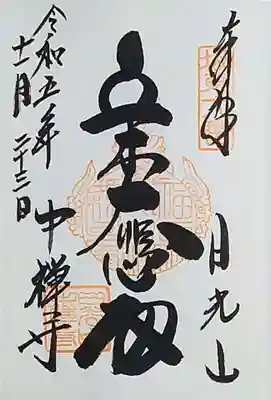 奉拝
日光山
立木大悲殿
中禪寺
令和五年
十一月二十三日